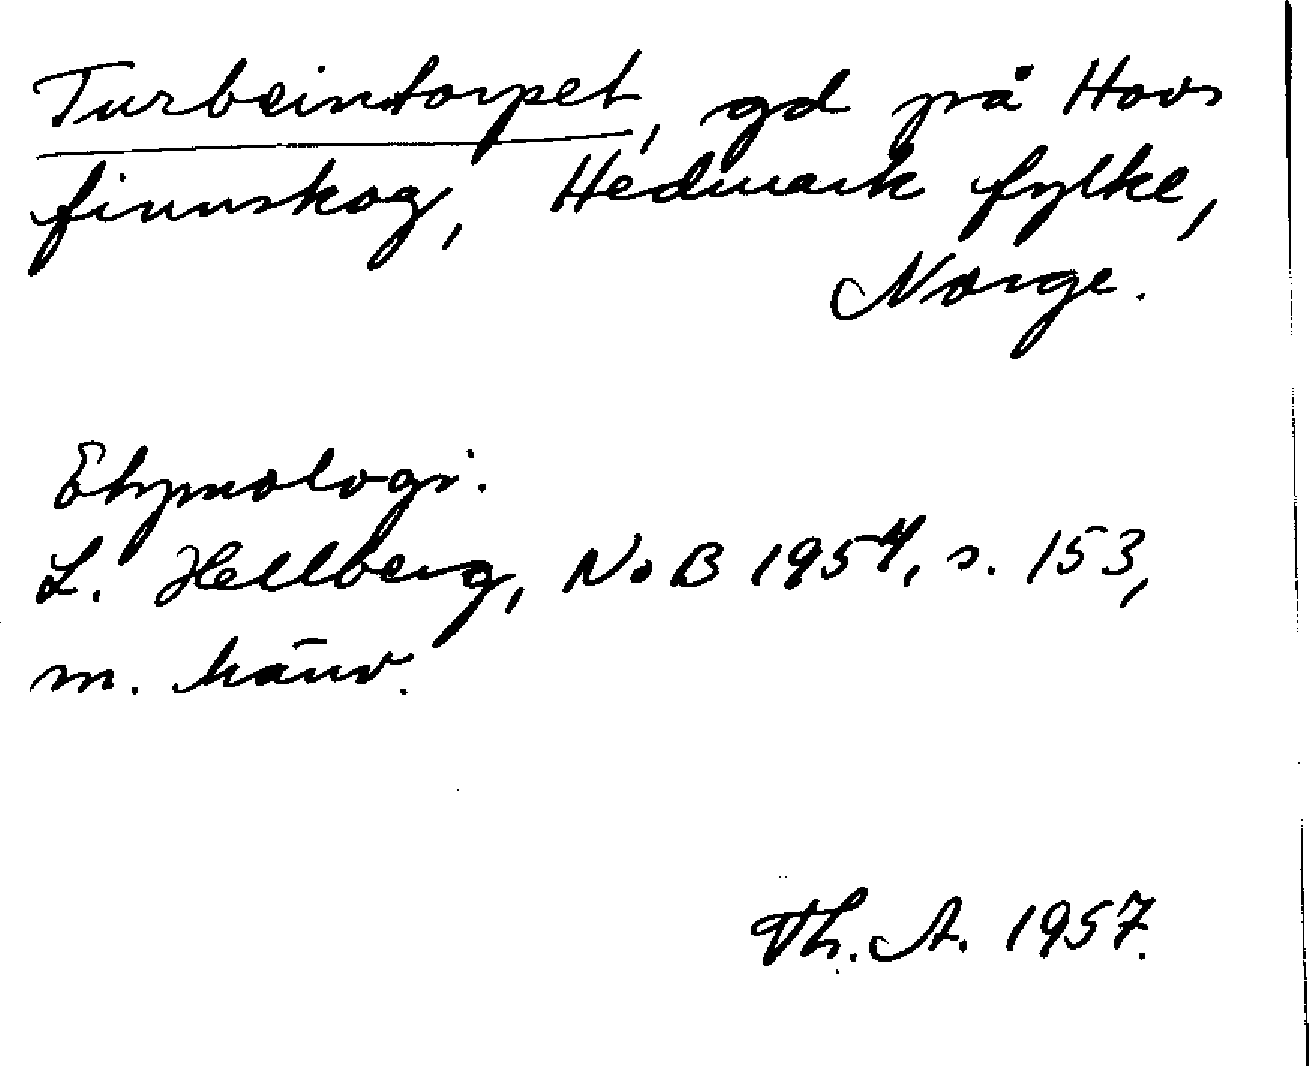 Turbeintorpet, gd på Hovs
finnskog, Hedmark fylke,
Norge.
Etymologi.
L. Hellberg, NoB 1954, s. 153,
m. hänv.
Th. A. 1957.